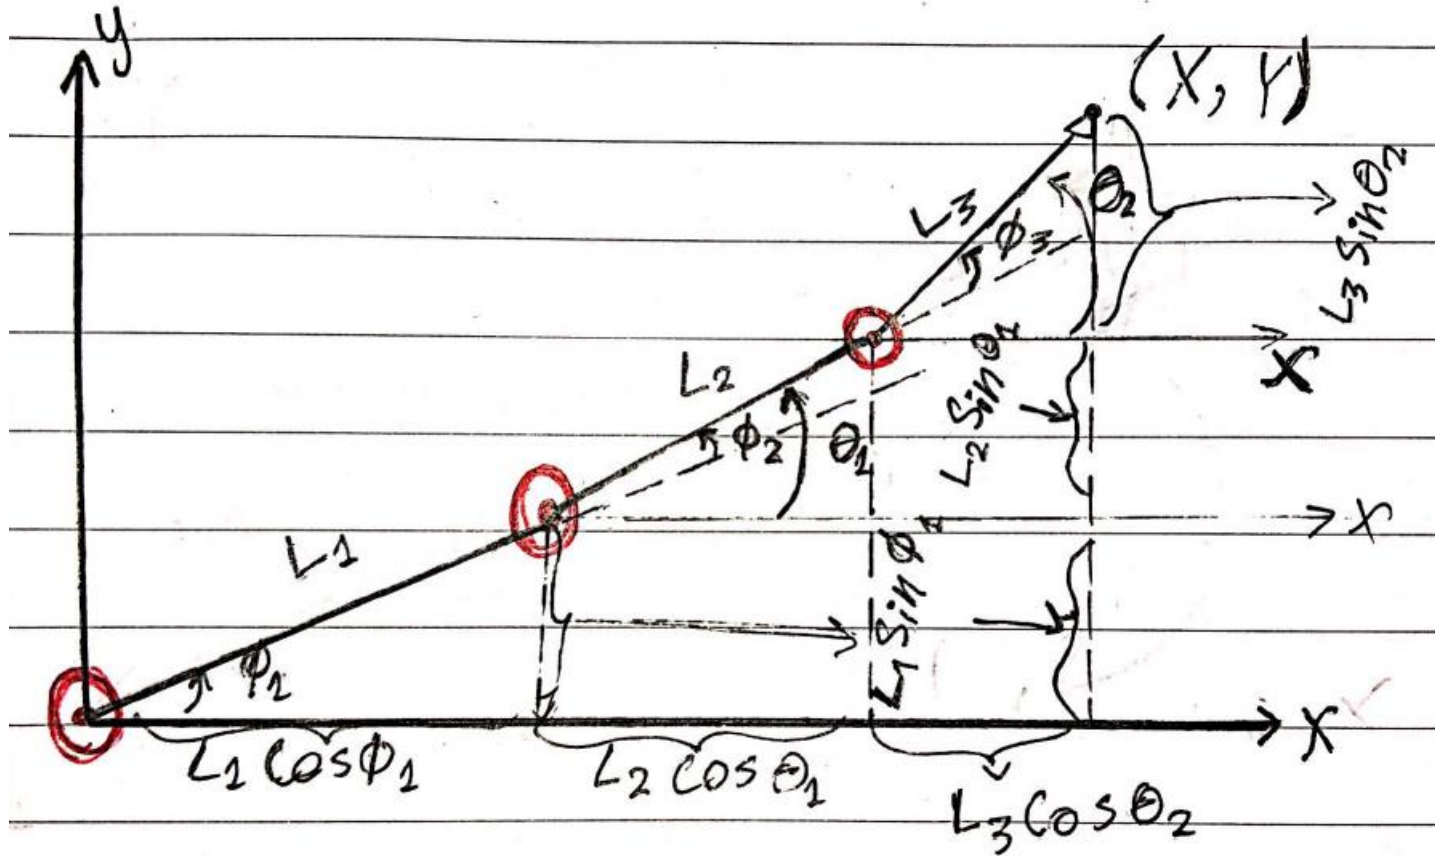 y
(X, Y)
L3
ϕ3
θ2
L3 Sinθ2
X
L2
ϕ2
θ1
L2 Sinθ1
X
L1
ϕ1
L1 Sinϕ1
X
L1 Cosϕ1
L2 Cosθ1
L3 Cosθ2